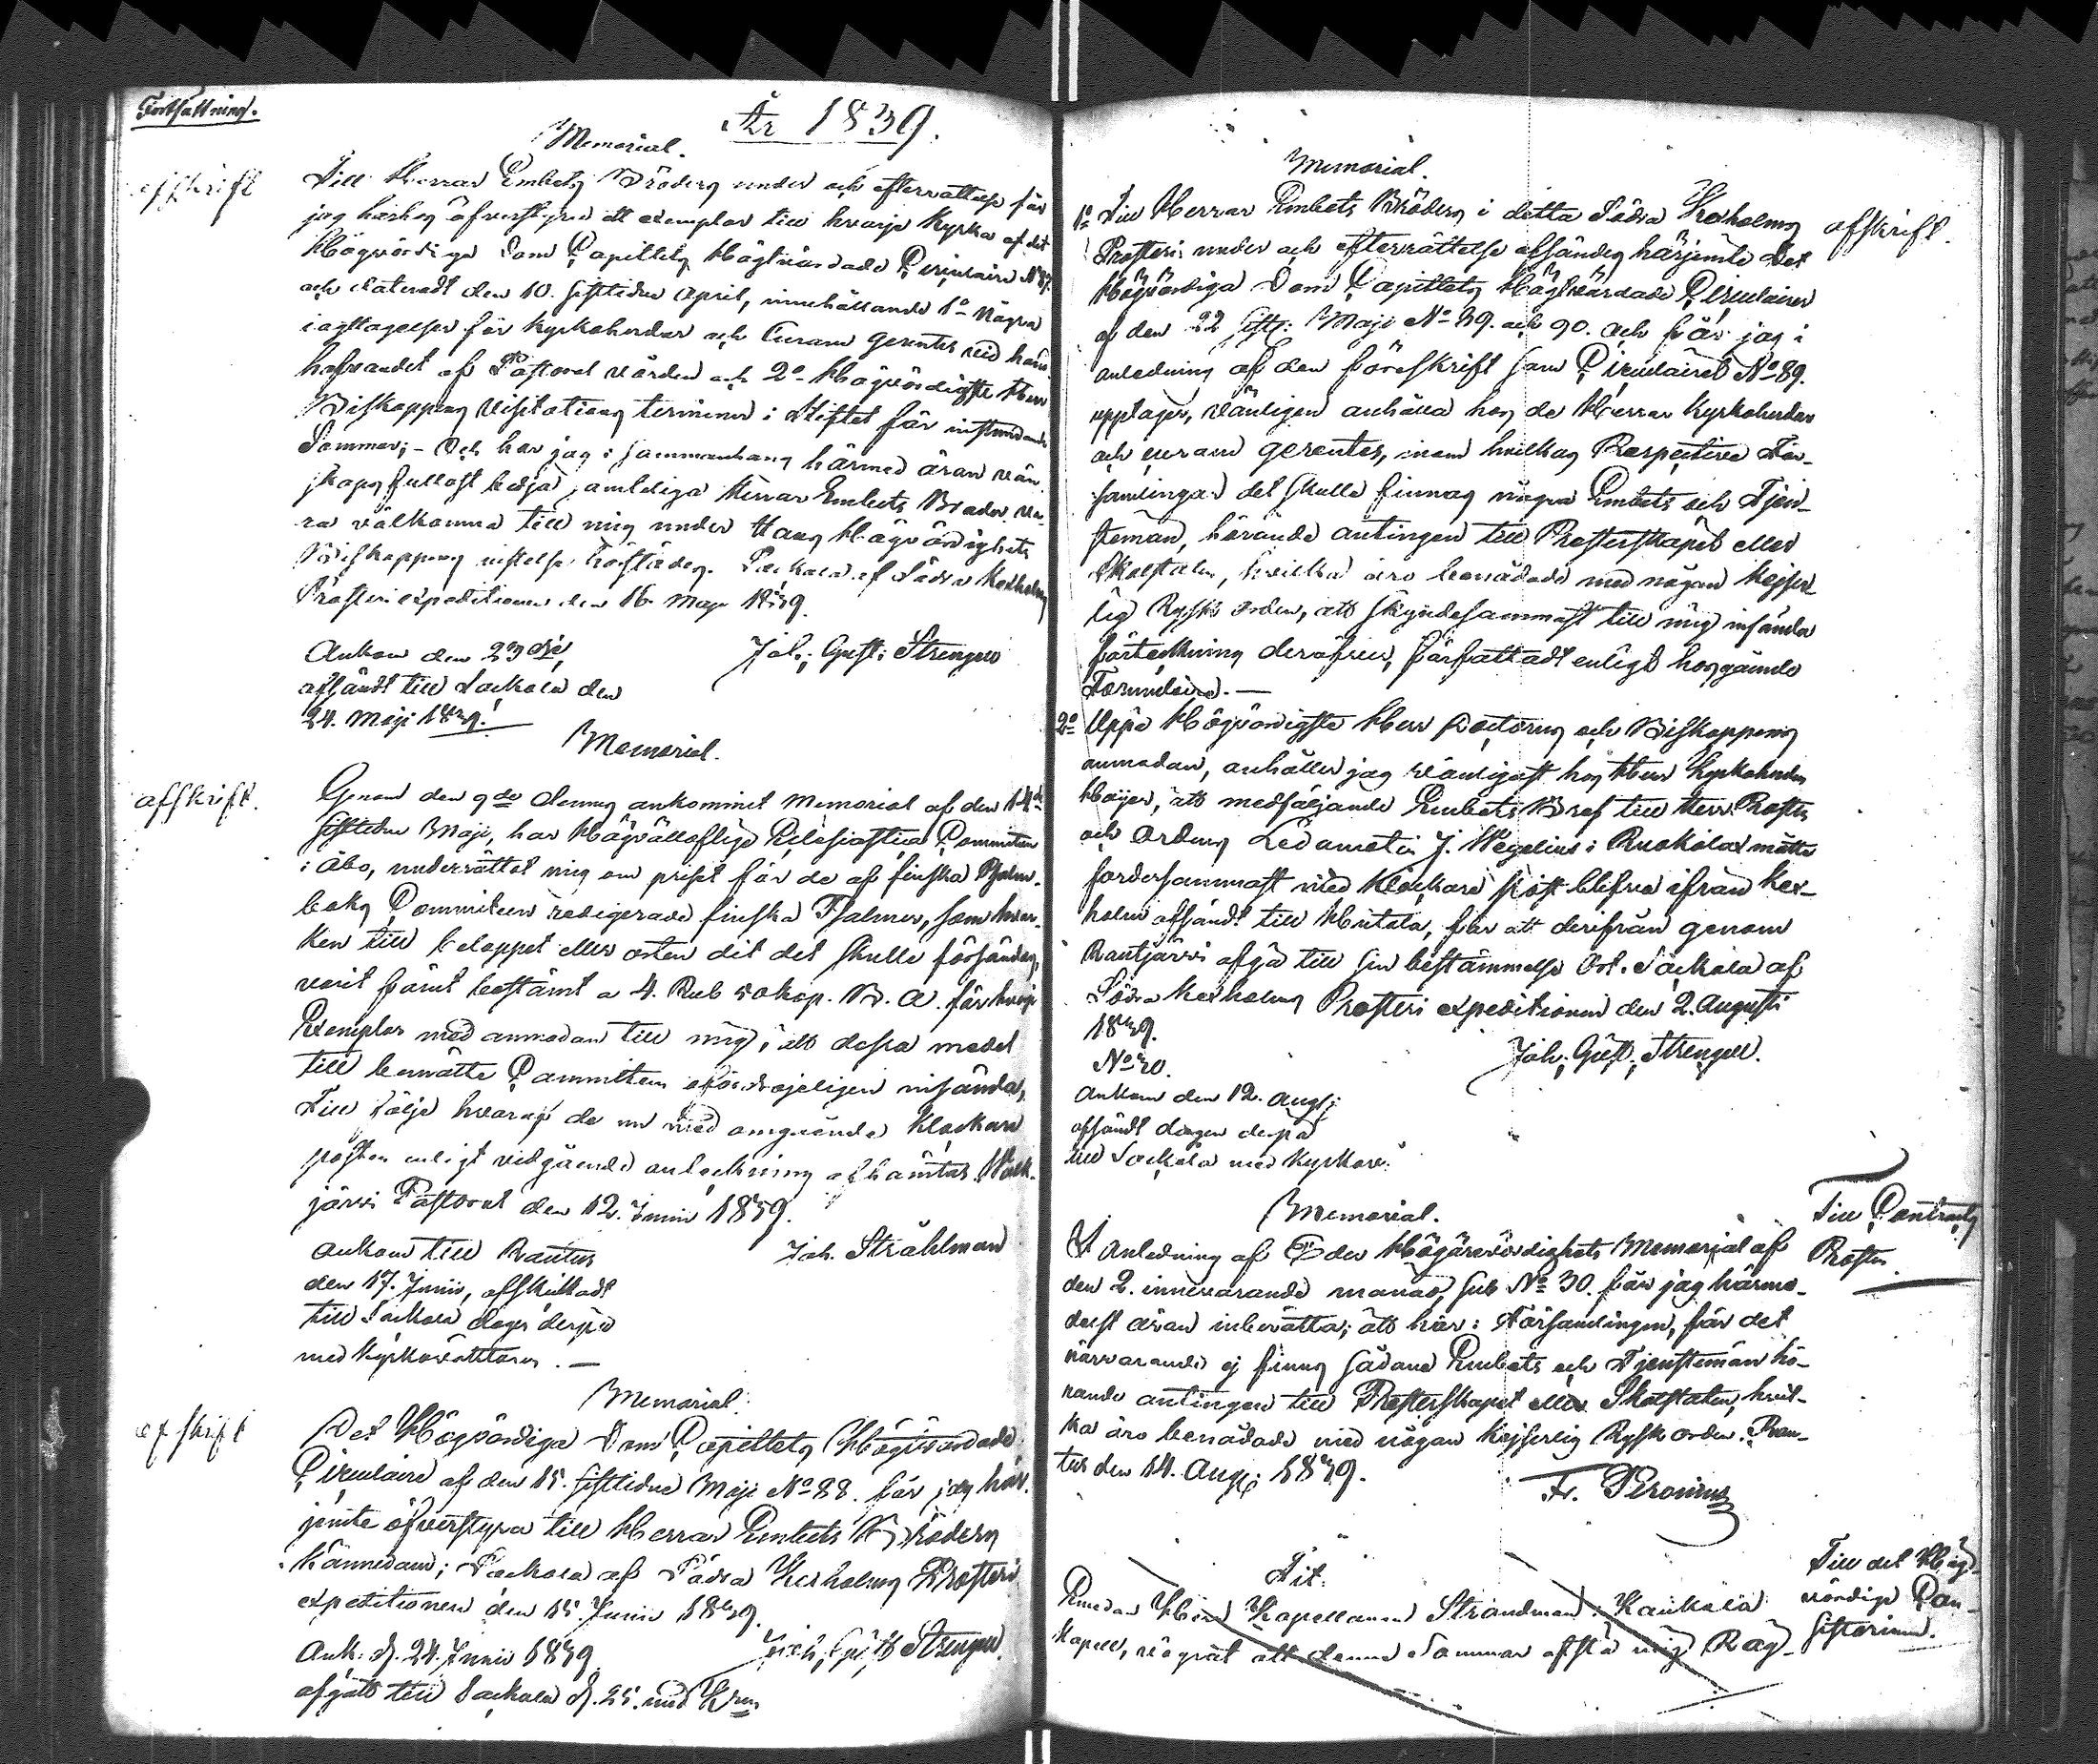 Fortsättning.
År 1839.
Memorial.
afskrift
Till Herrar Embets Bröders under och efterrättelse får
jag härhos öfverstyra ett exemplar till hvarje Kyrka af det
Högvördiga Dom Capitlets Högtvördade Circulaire N° 87.
och dateradt den 10. sistledne April, innehållande 1° några
iagttagelser för Kyrkoherdar och Curam gerentes vid hand-
hafvandet af Pastoral vården och 2° Högvördigste Herr
Biskoppens Visitations terminer i Stiftet för instundande
Sommar; - Och har jag i sammanhang härmed äran vän-
skapsfullast bedja samtelige Herrar Embets Bröder va-
ra välkomna till mig under Hans Högvördighets
Biskoppens vistelse härstädes. Sackola af Södra Kexholms
Prosteri expeditionen den 16. Maji 1839.
Joh: Gust: Strengell
Ankom den 23 die,
afsändt till Sackola den
24. Maji 1839.
Memorial.
afskrift.
Genom den 9de dennes ankommet Memorial af den 14de
sistledne Maji, har Högvällofliga Ecclesiastica Committen
i Åbo, underrättat mig om priset för de af finska Psalm-
boks Committeen redigerade finska Psalmer, som hvar-
ken till beloppet eller orten dit det skulle försändas,
varit förut bestämt a 4. Rub 50 kop. B. A. för hvarje
Exemplar med anmodan till mig, att dessa medel
till berörde Committeen ofördröjeligen insända,
Till följe hvaraf de nu med omgående Klockare
posten enligt vidgående anteckning afhämtas. Walk-
järvi Pastorat den 12. Junii 1839.
Joh. Stråhlman
Ankom till Rautus
den 17. Junii, afskickadt
till Sackola dagen derpå
med Kyrkovaktaren. —
Memorial.
afskrift
Det Högvördiga Dom Capitlets Högtvördade
Circulaire af den 15. sistledne Maji N° 88. får jag här-
jemte öfverstyra till Herrar Embets Bröders
kännedom; Sackola af Södra Kexholms Prosteri
expeditionen den 15. Junii 1839.
Joh. Gust Strengell.
Ank. d. 24. Junii 1839
afgått till Sackola d. 25. med
Memorial.
afskrift.
1° Till Herrar Embets Bröders i detta Södra Kexholms
Prosteri under och efterrättelse afsändes härjemte Det
Högvördiga Dom Capitlets Högtvördade Circulairer
af den 22 sistl: Maji N° 89. och 90. och får jag i
anledning af den föreskrift som Circulairet N° 89.
upptager, vänligen anhålla hos de Herrar Kyrkoherdar
och curam gerentes, inom hvilkas Respective För-
samlingar det skulle finnas några Embets och Tjen-
stemän, hörande antingen till Presterskapet eller
Skolstaten, hvilka äro benådade med någon Kejser-
lig Rysk orden, att skyndesammast till mig insända
förteckning deröfver, författadt enligt hosgående
Formulaire. —
2° Uppå Högvördigste Herr Doctorns och Biskoppens
anmodan, anhåller jag vänligast hos Herr Kyrkoherden
Hoijer, att medföljande Embets Bref till Herr Prosten
och Ordens Ledamoten J. Wegelius i Ruokolax måtte
fordersammast med Klockare post blifva ifrån Kex-
holm afsändt till Hiitola, för att derifrån genom
Rautjärvi afgå till sin bestämmelse Ort. Sackola af
Södra Kexholms Prosteri expeditionen den 2. Augusti
1839.
Joh: Gust: Strengell.
N° 30.
Ankom den 12. Aug:
afsändt dagen derpå
till Sackola med Kyrkov:
Memorial.
Till Contracts
Prosten.
I Anledning af Eder Högärevördighets Memorial af
den 2. innevarande månad, sub N° 30. får jag härmed
äran inberätta; att här i Församlingen, för det
närvarande ej finns sådane Embets och Tjenstemän hö-
rande antingen till Presterskapet eller Skolstaten, hvil-
ka äro benådade med någon Kejserlig Rysk orden. Rau-
tus den 14. Aug: 1839.
Fr. Peronius
Till det Hög-
vördige Con-
sistorium.
Dit.
Emedan Herr Kapellanen Strandman i Kaukola
Kapell, vägrat att denna Sommar afstå mig Råg-